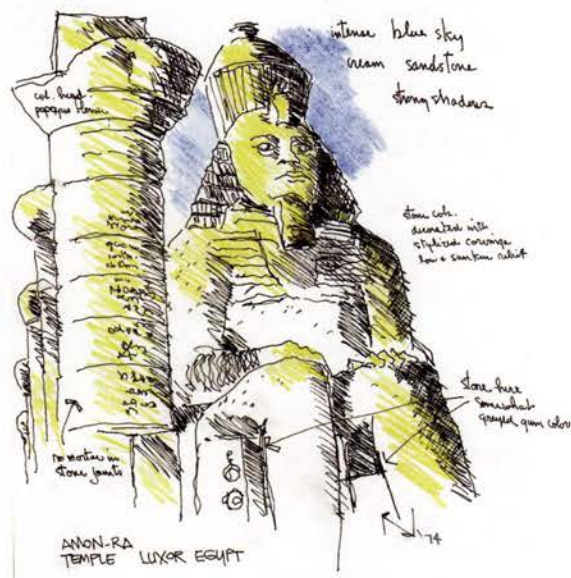 intense blue sky
cream sandstone
strong shadows
col. head
papyrus flower
stone cols.
decorated with
stylized carvings
low & sunken relief
stone here
somewhat
greyed gum color
no mortar in
stone joints
74
AMON-RA
TEMPLE LUXOR EGYPT